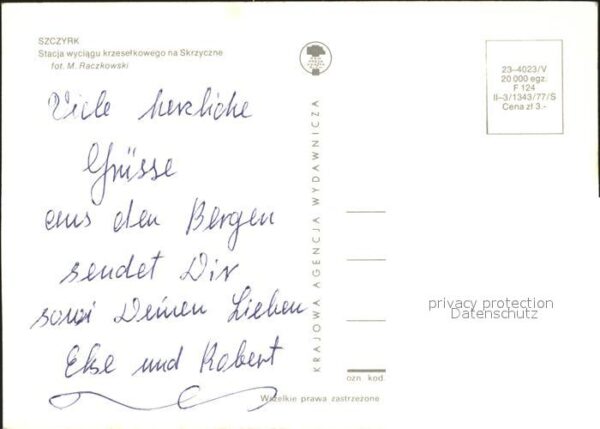 SZCZYRK
Stacja wyciągu krzesełkowego na Skrzyczne
fot. M. Raczkowski
Viele herzliche
Grüsse
aus den Bergen
sendet Dir
sowi Deinen Lieben
Else und Robert
KRAJOWA AGENCJA WYDAWNICZA
23-4023/V
20 000 egz.
F 124
II-3/1343/77/S
Cena zł 3.-
privacy protection
Datenschutz
ozn kod
Wszelkie prawa zastrzeżone